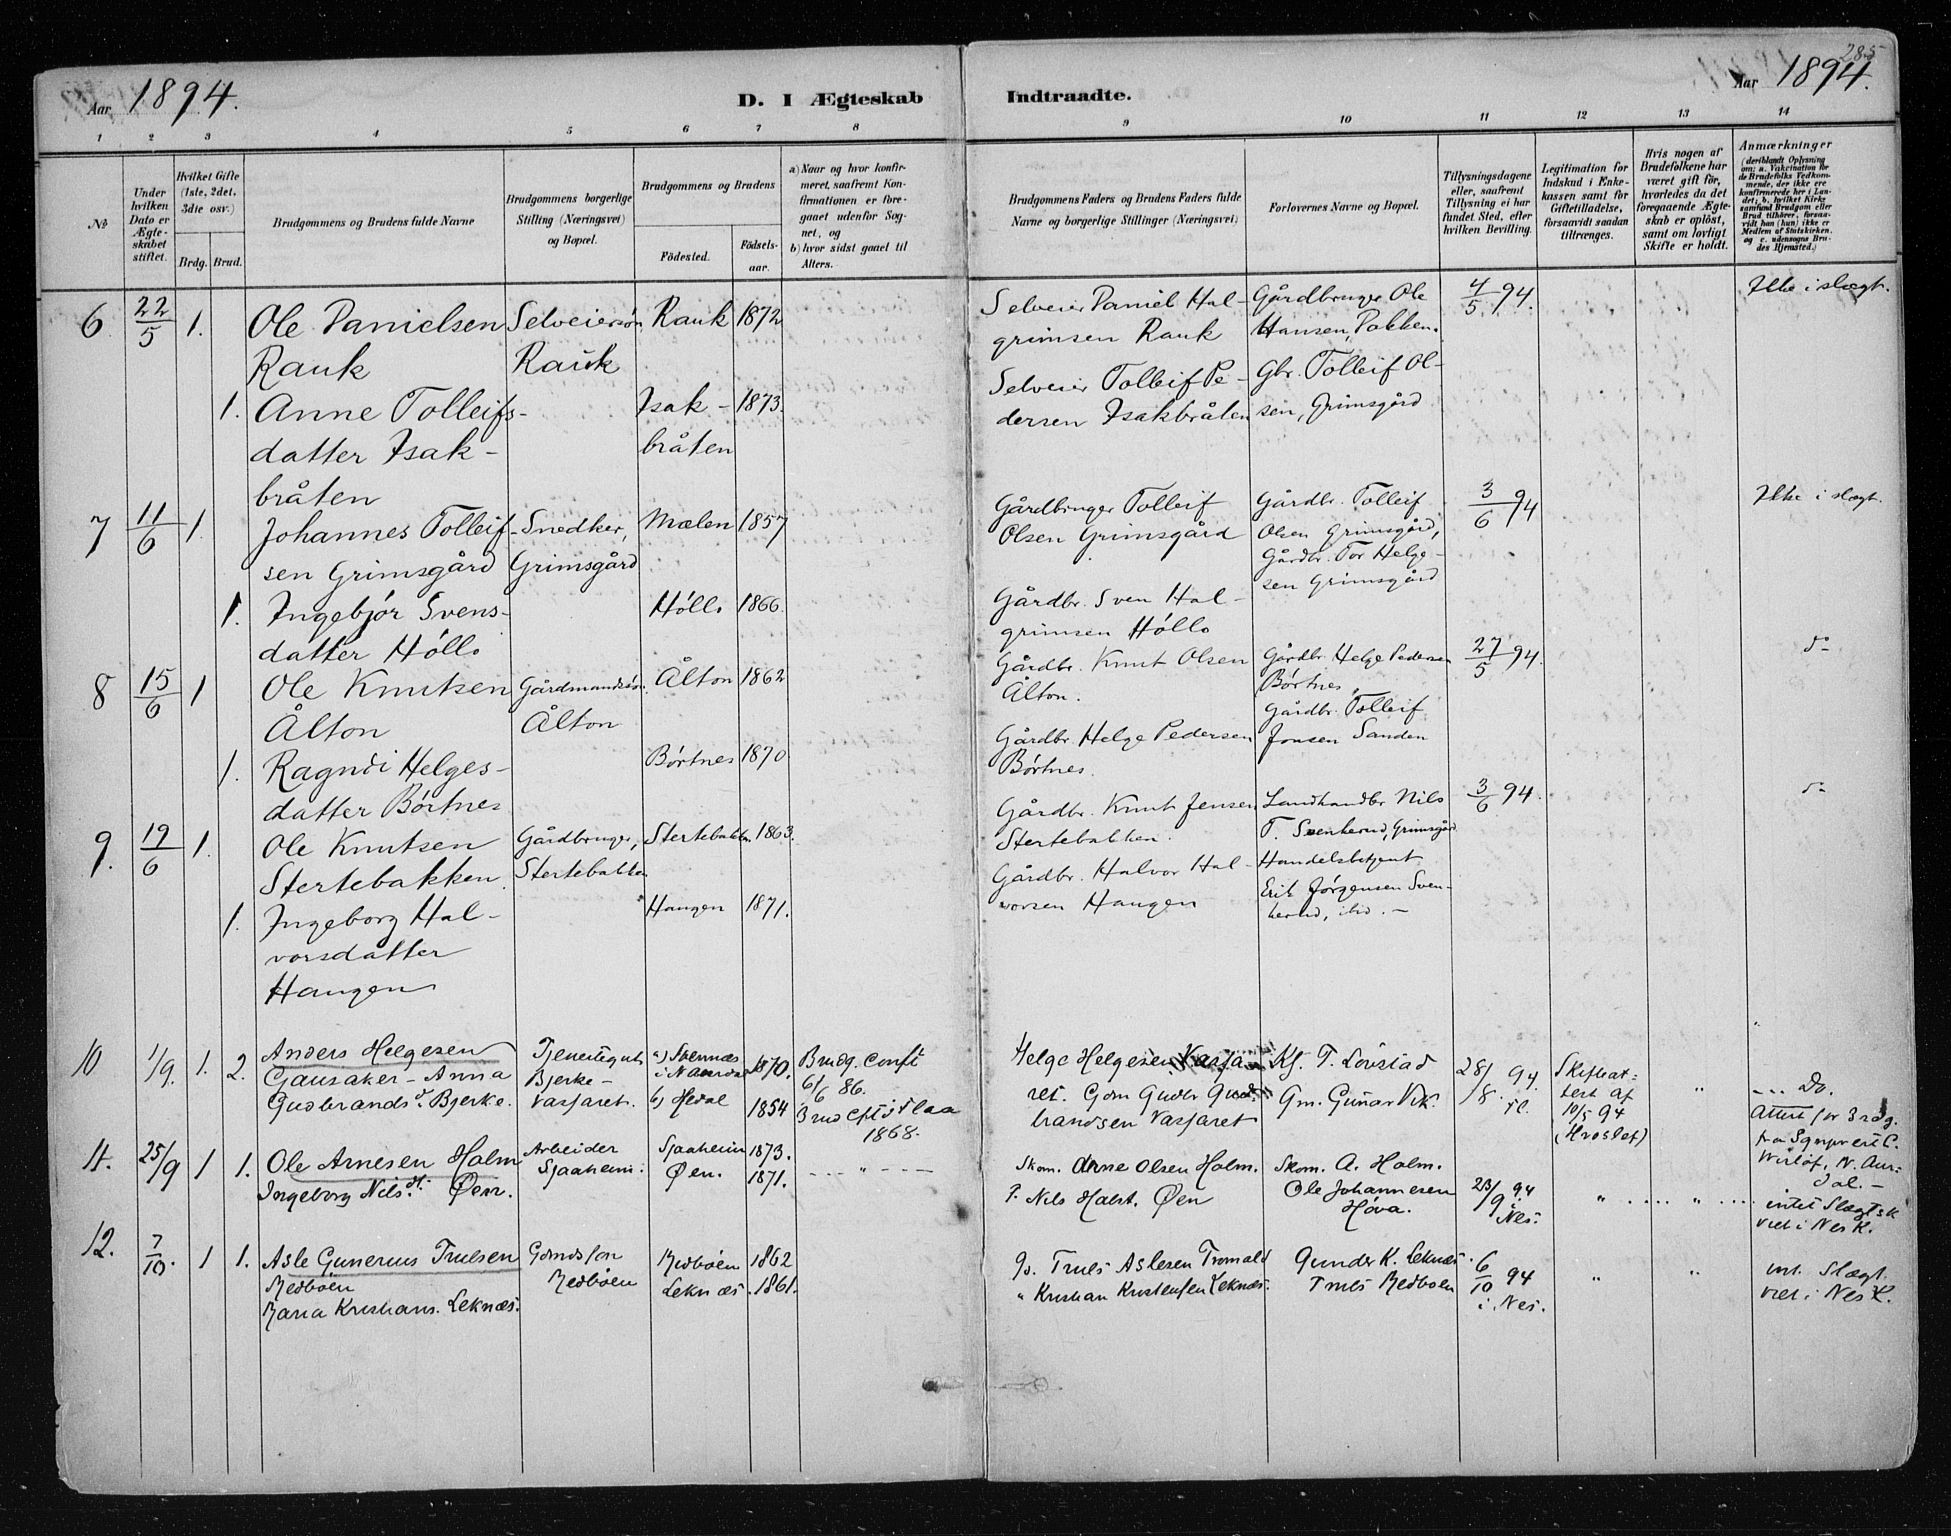 285
Aar 1894.
D. I Ægteskab Indtraadte.
Aar 1894.
1 2 3 4 5 6 7 8 9 10 11 12 13 14
No
Under hvilken Dato er Ægteskabet stiftet.
Hvilket Gifte (1ste, 2det, 3die osv.)
Brdg. Brud.
Brudgommens og Brudens fulde Navne
Brudgommens borgerlige Stilling (Næringsvei) og Bopæl.
Brudgommens og Brudens
Fødested.
Fødsels-aar.
a) Naar og hvor konfirmeret, saafremt Konfirmationen er foregaaet udenfor Sognet, og
b) hvor sidst gaaet til Alters.
Brudgommens Faders og Brudens Faders fulde Navne og borgerlige Stillinger (Næringsvei)
Forlovernes Navne og Bopæl.
Tillysningsdagene eller, saafremt Tillysning ei har fundet Sted, efter hvilken Bevilling.
Legitimation for Indskud i Enkekassen samt for Giftetilladelse, forsaavidt saadan tiltrænges.
Hvis nogen af Brudefolkene har været gift før, hvorledes da det foregaaende Ægteskab er opløst, samt om lovligt Skifte er holdt.
Anmærkninger
(deriblandt Oplysning om: a. Vakcination for de Brudefolks Vedkommende, der ikke ere konfirmerede her i Landet; b. hvilket Kirkesamfund Brudgom eller Brud tilhører, forsaavidt han (hun) ikke er Medlem af Statskirken, og c. udensogns Brudes Hjemsted.)
6 22/5 1. Ole Danielsen Selveiersøn Rauk 1872
Rauk Rauk
1. Anne Tolleifs- Isak- 1873.
datter Isak- bråten
bråten
Selveier Daniel Hal- Gårdbruger Ole 4/5 94. Ikke i slægt.
grimsen Rauk Hansen,
Selveier Tolleif Pe- Gbr. Tolleif Ol-
dersen Isakbråten sen, Grimsgård
7 11/6 1. Johannes Tolleif- Snedker, Mælen 1857
sen Grimsgård Grimsgård
1. Ingebjør Svens- Høllo 1866.
datter Høllo
Gårdbruger Tolleif Gårdbr. Tolleif 3/6 94 Ikke i slægt.
Olsen Grimsgård Olsen Grimsgård,
Gårdbr. Tor Helge-
sen Grimsgård
Gårdbr. Sven Hal-
grimsen Høllo
8 15/6 1 Ole Knutsen Gårdmandssøn Ålton 1862
Ålton Ålton
1. Ragndi Helges- Børtnes 1870
datter Børtnes
Gårdbr. Knut Olsen Gårdbr. Helge Pedersen 27/5 94.
Ålton. Børtnes,
Gårdbr. Tolleif
Gårdbr. Helge Pedersen Jonsen Sanden
Børtnes.
9. 19/6 1. Ole Knutsen Gårdbruger, Stertebakken 1863.
Stertebakken Stertebakken
1. Ingeborg Hal- Haugen 1871.
vorsdatter
Haugen
Gårdbr. Knut Jensen Landhandler Nils 3/6 94.
Stertebakken. T. Svenkerud, Grimsgård
Gårdbr. Halvor Hal- Handelsbetjent
vorsen Haugen Erik Jørgensen Sven-
kerud, ibid.
10 1/9. 1. 2. Anders Helgesen Tjenestegut a) 1870. Brudg. Conft
Gausaker - Anna Bjerke- 6/6 86.
Gudbrandsd. Bjerke. Vasfaret. b) Hedal 1854 Brud Cft i Flaa
1868.
Helge Helgesen Vasfa- Ks. T. Lovstad 28/8. 94 Skifteat- Do.
ret. Gdm Gudbr Gud- Gm. Gunar Vik. test af Attest for Brdg.
brandsen Vasfaret 10/5 94
11. 25/9 1 1. Ole Arnesen Holm Arbeider Sjaaheim 1873.
Ingeborg Nilsdt. Øen. Sjaaheim. Øen. 1871.
Skom. Arne Olsen Holm. Skom. A. Holm.
P. Nils Halst. Øen Ole Johannesen 23/9 94 intet Slægtsk
Høva. Nes. viet i Nes K.
12. 7/10. 1 1. Asle Gunerius Trulsen Gdmdsson Medbøen 1862
Medbøen Medbøen Leknæs. 1861.
Maria Kristians. Leknæs.
Truls Aslesen Tromald Gunder K. Leknæs. 6/10 94 int. Slægt.
" Kristian Kristensen Leknæs. Truls Medbøen i Nes. viet i Nes K.